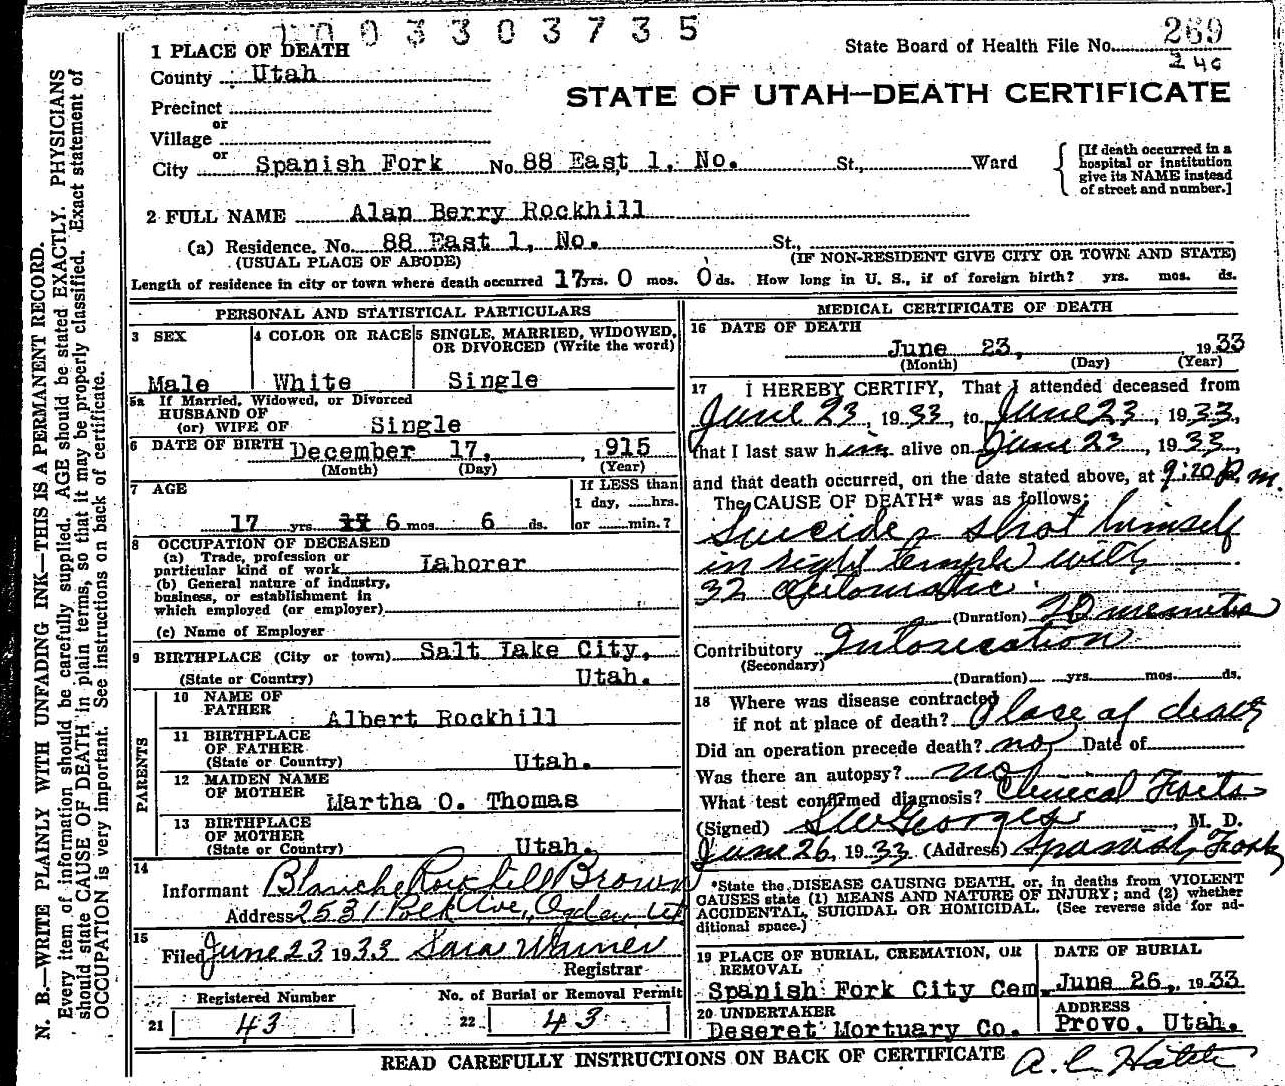 1003303735
State Board of Health File No. 269
246
1 PLACE OF DEATH
County Utah
STATE OF UTAH—DEATH CERTIFICATE
Precinct
or
Village
or
City Spanish Fork No. 88 East 1, No. St., Ward
[If death occurred in a hospital or institution give its NAME instead of street and number.]
2 FULL NAME Alan Berry Rockhill
(a) Residence. No. 88 East 1, No. St.,
(USUAL PLACE OF ABODE) (IF NON-RESIDENT GIVE CITY OR TOWN AND STATE)
Length of residence in city or town where death occurred 17 yrs. 0 mos. 0 ds. How long in U. S., if of foreign birth? yrs. mos. ds.
PERSONAL AND STATISTICAL PARTICULARS
3 SEX
Male
4 COLOR OR RACE
White
5 SINGLE, MARRIED, WIDOWED, OR DIVORCED (Write the word)
Single
5a If Married, Widowed, or Divorced
HUSBAND OF
(or) WIFE OF Single
6 DATE OF BIRTH December 17, 1915
(Month) (Day) (Year)
7 AGE
17 yrs. 6 mos. 6 ds.
If LESS than
1 day, hrs.
or min.?
8 OCCUPATION OF DECEASED
(a) Trade, profession or
particular kind of work Laborer
(b) General nature of industry,
business, or establishment in
which employed (or employer)
(c) Name of Employer
9 BIRTHPLACE (City or town) Salt Lake City,
(State or Country) Utah.
PARENTS
10 NAME OF
FATHER Albert Rockhill
11 BIRTHPLACE
OF FATHER
(State or Country) Utah.
12 MAIDEN NAME
OF MOTHER Martha O. Thomas
13 BIRTHPLACE
OF MOTHER
(State or Country) Utah.
14
Informant Blanche Rockhill Brown
Address 2531 Polk Ave, Ogden Ut
15
Filed June 23 1933 Sara Warner
Registrar
Registered Number
21 43
No. of Burial or Removal Permit
22 43
MEDICAL CERTIFICATE OF DEATH
16 DATE OF DEATH
June 23, 1933
(Month) (Day) (Year)
17 I HEREBY CERTIFY, That I attended deceased from
June 23, 1933, to June 23, 1933,
that I last saw him alive on June 23, 1933,
and that death occurred, on the date stated above, at 9:20 P.m.
The CAUSE OF DEATH* was as follows:
Suicide, shot himself
in right temple with
32 Automatic
(Duration) 20 minutes
Contributory Intoxication
(Secondary)
(Duration) yrs. mos. ds.
18 Where was disease contracted
if not at place of death? Place of death
Did an operation precede death? no Date of
Was there an autopsy? no
What test confirmed diagnosis? Clinical Facts
(Signed) S W Georges, M. D.
June 26, 1933 (Address) Spanish Fork
*State the DISEASE CAUSING DEATH, or, in deaths from VIOLENT
CAUSES state (1) MEANS AND NATURE OF INJURY; and (2) whether
ACCIDENTAL, SUICIDAL OR HOMICIDAL. (See reverse side for ad-
ditional space.)
19 PLACE OF BURIAL, CREMATION, OR
REMOVAL
Spanish Fork City Cem.
DATE OF BURIAL
June 26, 1933
20 UNDERTAKER
Deseret Mortuary Co.
ADDRESS
Provo, Utah.
READ CAREFULLY INSTRUCTIONS ON BACK OF CERTIFICATE
N. B.—WRITE PLAINLY WITH UNFADING INK—THIS IS A PERMANENT RECORD.
Every item of information should be carefully supplied. AGE should be stated EXACTLY. PHYSICIANS
should state CAUSE OF DEATH in plain terms, so that it may be properly classified. Exact statement of
OCCUPATION is very important. See instructions on back of certificate.